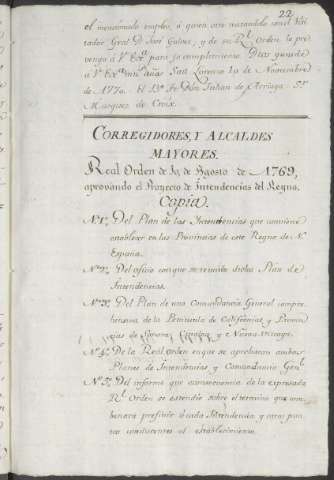 22
el mencionado empleo, á quien esta notando con el Visi
tador Gral. Dn. José Galvez, y de su Rl. Orden lo pre
vengo á V. Exa. para su cumplimiento. Dios guarde
á V. Exa. ms. años San Lorenzo 19 de Noviembre
de 1770. El Bo. Fr. Dn. Julian de Arriaga. Sr.
Marques de Croix.
CORREGIDORES, Y ALCALDES
MAYORES.
Real Orden de 19 de Agosto de 1769,
aprovando el Proyecto de Intendencias del Regno.
Copia.
N.º 1.º Del Plan de las Intendencias que conviene
establecer en las Provincias de este Reyno de Na.
España.
N.º 2.º Del oficio con que se remitió dicho Plan de
Intendencias.
N.º 3.º Del Plan de una Comandancia General compre
hensiva de la Peninsula de Californias y Provin
cias de Sonora, Cinaloa, y Nueva Vizcaya.
N.º 4.º De la Real orden en que se aprobaron ambos
Planes de Intendencias y Comandancia Genl.
N.º 5.º Del informe que á consecuencia de la expresada
Rl. Orden se estendió sobre el termino que con
benará prefixir á cada Intendencia y otros pun
tos conducentes al establecimiento.